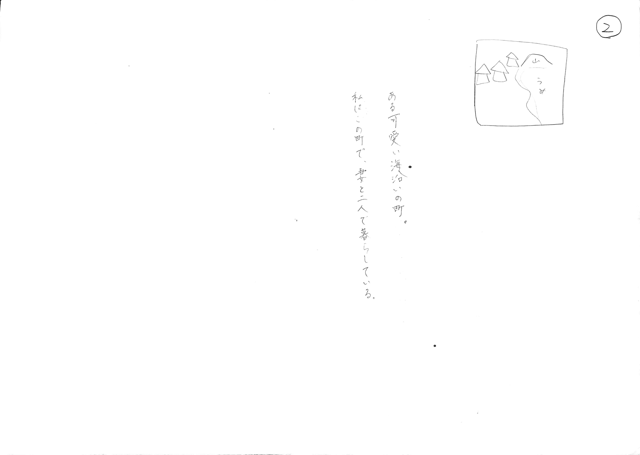 ②
山
うみ
ある可愛い海沿いの町。
私はこの町で、妻と二人で暮らしている。